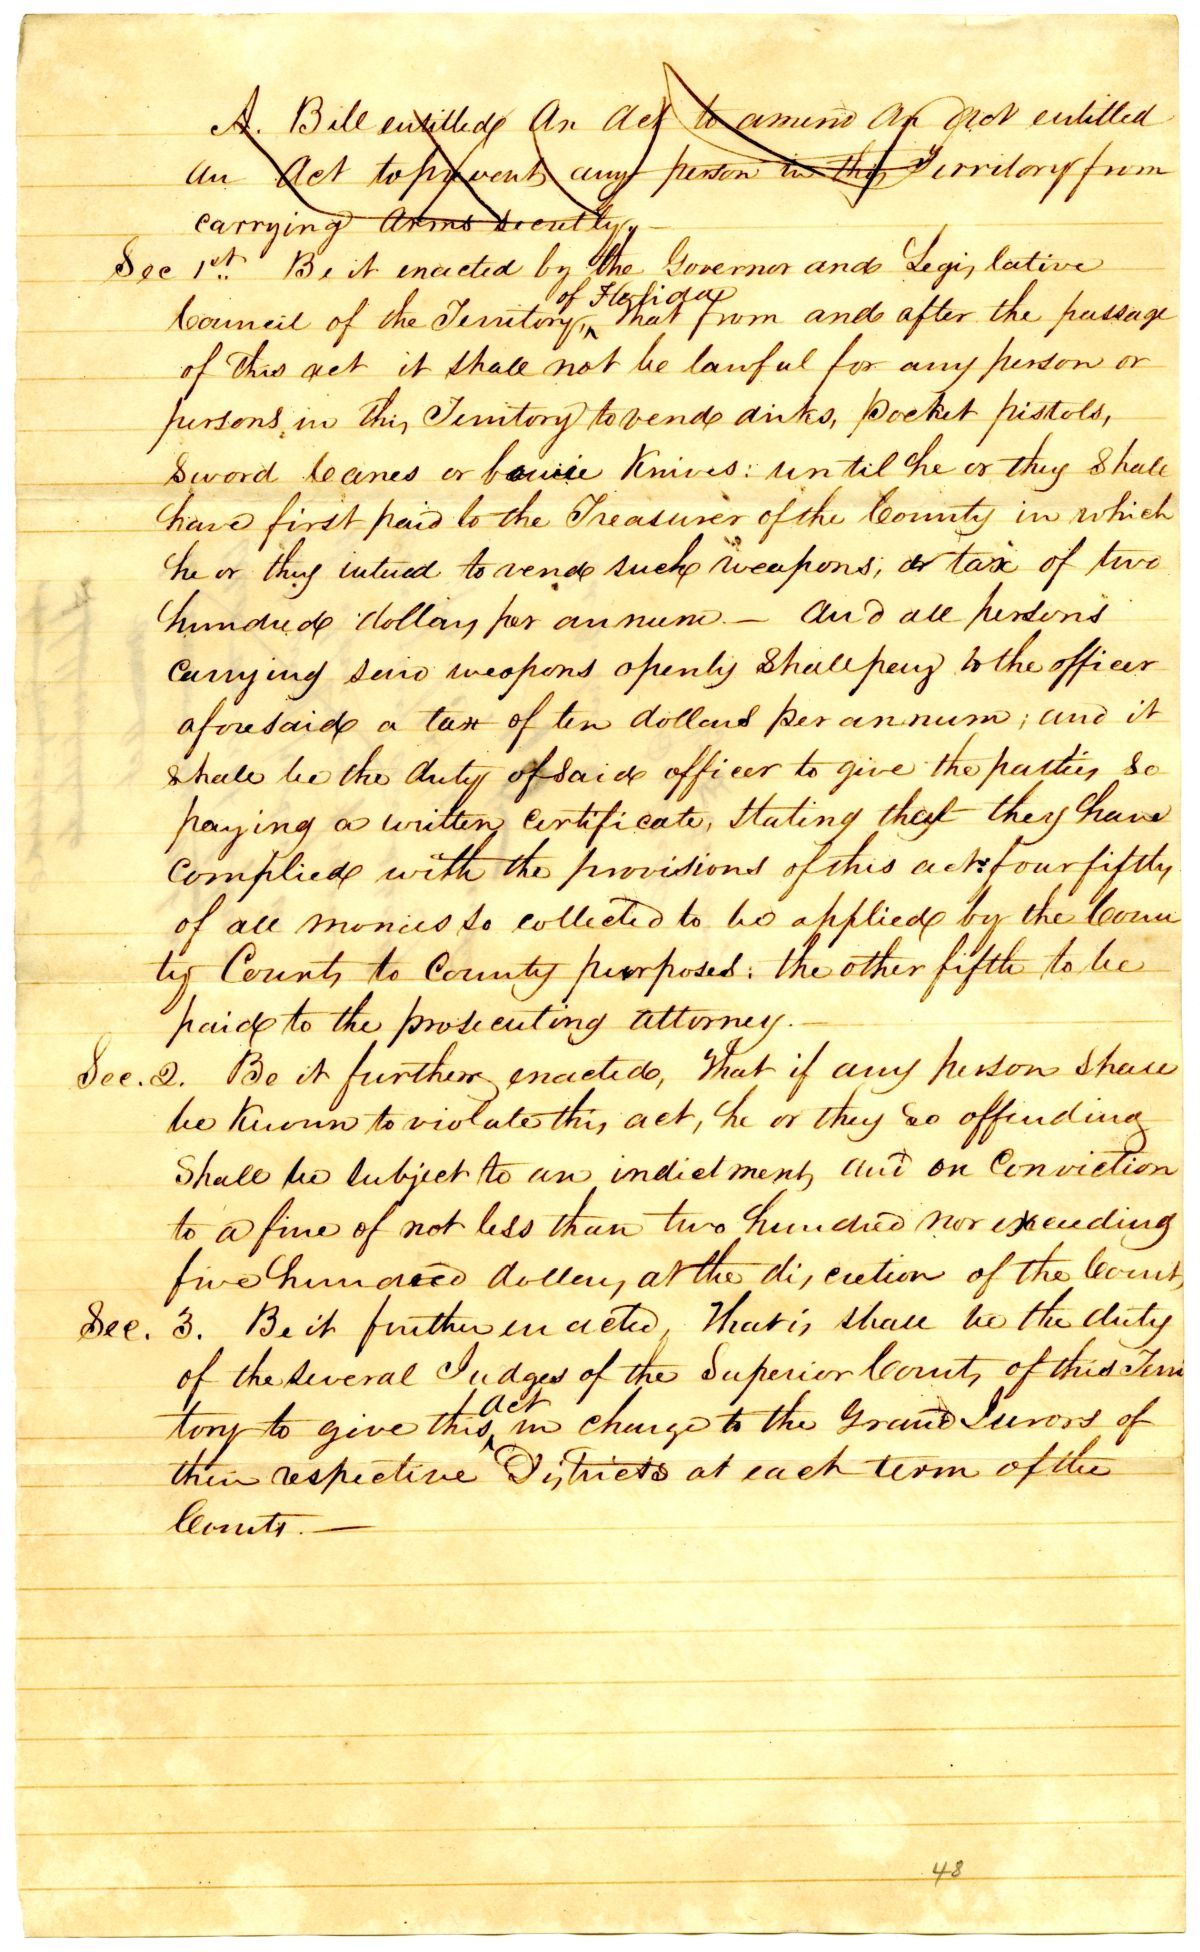 A. Bill entitled An Act to amend An Act entitled
An Act to prevent any person in this Territory from
carrying Arms secretly,
Sec 1st. Be it enacted by the Governor and Legislative
of Florida
Council of the Territory, That from and after the passage
of this act it shall not be lawful for any person or
persons in this Territory to vend dirks, pocket pistols,
Sword Canes or bowie Knives: until he or they Shall
have first paid to the Treasurer of the County in which
he or they intend to vend such weapons, a tax of two
hundred dollars per annum. — And all persons
Carrying said weapons openly Shall pay to the officer
aforesaid a tax of ten dollars per annum; and it
shall be the duty of said officer to give the parties so
paying a written certificate, stating that they have
Complied with the provisions of this act: four fifths
of all monies so collected to be applied by the Coun
ty Courts to County purposes: the other fifth to be
paid to the prosecuting attorney. —
Sec. 2. Be it further enacted, That if any person shall
be Known to violate this act, he or they so offending
Shall be subject to an indictment, and on Conviction
to a fine of not less than two hundred nor exceeding
five hundred dollars, at the discretion of the Court,
Sec. 3. Be it further enacted, That is shall be the duty
of the several Judges of the Superior Courts of this Terri
act
tory to give this in charge to the Grand Jurors of
their respective Districts at each term of the
Courts. —
48